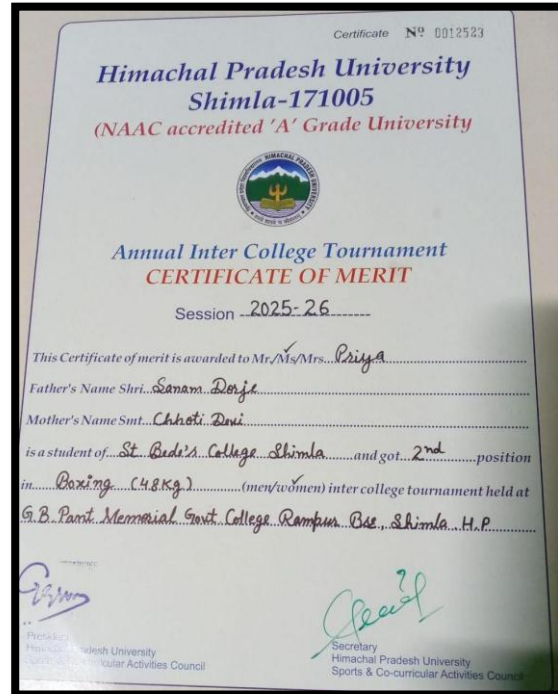 Certificate Nº 0012523
Himachal Pradesh University
Shimla-171005
(NAAC accredited 'A' Grade University
HIMACHAL PRADESH UNIVERSITY
Annual Inter College Tournament
CERTIFICATE OF MERIT
Session 2025-26
This Certificate of merit is awarded to Mr./Ms/Mrs. Priya
Father's Name Shri. Sanam Dorje
Mother's Name Smt. Chhoti Devi
is a student of St Bede's College Shimla and got 2nd position
in Boxing (48Kg) (men/women) inter college tournament held at
G.B. Pant Memorial Govt. College Rampur Bse., Shimla H.P
President
Himachal Pradesh University
Sports & Co-curricular Activities Council
Secretary
Himachal Pradesh University
Sports & Co-curricular Activities Council